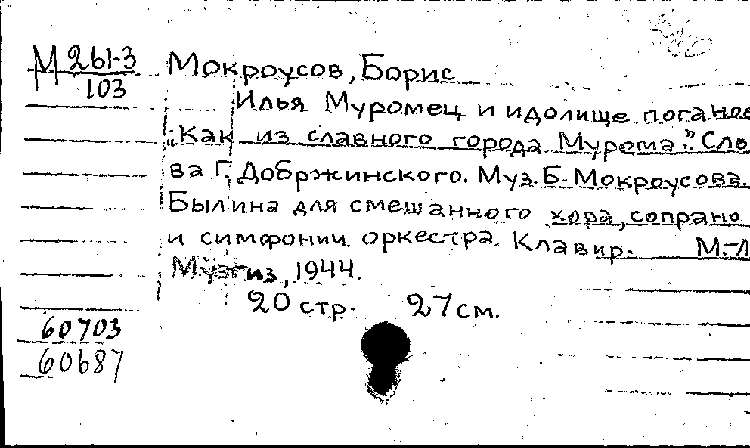 М 261-3
103
Мокроусов, Борис
Илья Муромец и идолище поганое
„Как из славного города Мурома". Сло-
ва Г. Добржинского. Муз. Б. Мокроусова.
Былина для смешанного хора, сопрано
и симфонии оркестра. Клавир. М.-Л
Музгиз, 1944.
20 стр. 27 см.
60703
60687